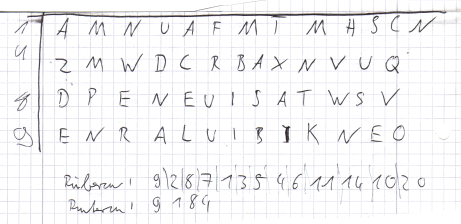 1 A M N U A F M I M H S C N
4 Z M W D C R B A X N V U Q
8 D P E N E U I S A T W S V
9 E N R A L U I B I K N E O
9|2|8|7|13|5|4|6|11|14|10|20
9 1 8 4